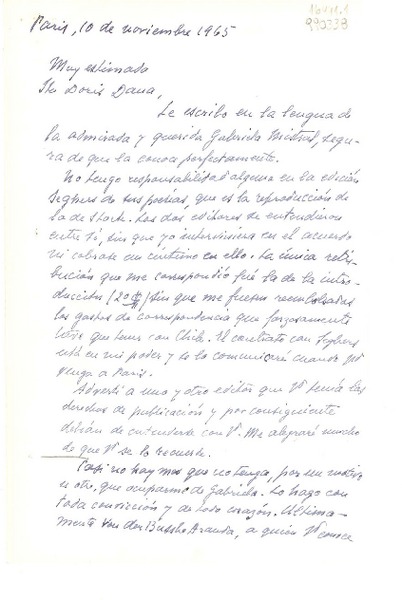 164111.1
990338
Paris, 10 de noviembre 1965
Muy estimada
Sta Doris Dana,
Le escribo en la lengua de
la admirada y querida Gabriela Mistral, segu-
ra de que la conoce perfectamente.
No tengo responsabilidad alguna en la edición
Seghers de sus poesías, que es la reproducción de
la de Stock. Los dos editores se entendieron
entre sí, sin que yo interviniera en el acuerdo
ni cobrase un céntimo en ello. La única retri-
bución que me correspondió fué la de la intro-
ducción sin que me fuesen reembolsados
los gastos de correspondencia que forzosamente
tuve que tener con Chile. El contrato con Seghers
está en mi poder y se lo comunicaré cuando Vd
venga a Paris.
Advertí a uno y otro editor que Vd tenía los
derechos de publicación y por consiguiente
debían de entenderse con Vd. Me alegraré mucho
de que Vd se lo recuerde.
Casi no hay mes que no tenga, por un motivo
u otro, que ocuparme de Gabriela. Lo hago con
toda convicción y de todo corazón. Ultima-
mente Van der Bussche Aranda, a quien Vd conoce